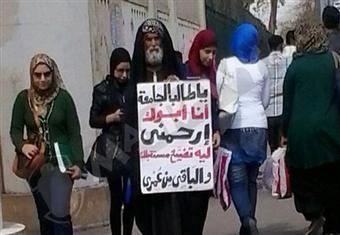 يا طالب الجامعة
أنا أبوك
إرحمنى
ليه تضيع مستقبلك
والباقى من عمرى